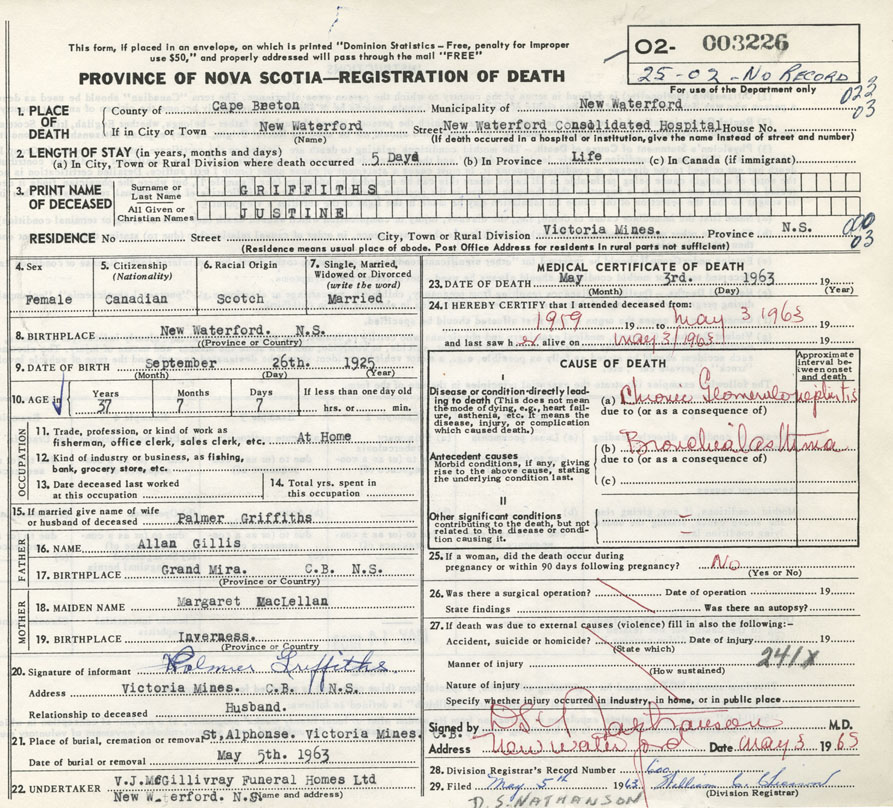 This form, if placed in an envelope, on which is printed "Dominion Statistics – Free, penalty for improper
use $50," and properly addressed will pass through the mail "FREE"
PROVINCE OF NOVA SCOTIA—REGISTRATION OF DEATH
O2- 003226
25-02-No RECORD
For use of the Department only
023
03
1. PLACE OF DEATH
County of Cape Breton Municipality of New Waterford
If in City or Town New Waterford Street New Waterford Consolidated Hospital House No.
(Name) (If death occurred in a hospital or institution, give the name instead of street and number)
2. LENGTH OF STAY (in years, months and days)
(a) In City, Town or Rural Division where death occurred 5 Days (b) In Province Life (c) In Canada (if immigrant)
3. PRINT NAME OF DECEASED
Surname or Last Name GRIFFITHS
All Given or Christian Names JUSTINE
RESIDENCE No Street City, Town or Rural Division Victoria Mines. Province N.S.
(Residence means usual place of abode. Post Office Address for residents in rural parts not sufficient)
03
4. Sex
Female
5. Citizenship (Nationality)
Canadian
6. Racial Origin
Scotch
7. Single, Married, Widowed or Divorced (write the word)
Married
8. BIRTHPLACE New Waterford. N.S.
(Province or Country)
9. DATE OF BIRTH September 26th. 1925
(Month) (Day) (Year)
10. AGE in Years 37 Months 7 Days 7 If less than one day old hrs. or min.
OCCUPATION
11. Trade, profession, or kind of work as fisherman, office clerk, sales clerk, etc. At Home
12. Kind of industry or business, as fishing, bank, grocery store, etc.
13. Date deceased last worked at this occupation
14. Total yrs. spent in this occupation
15. If married give name of wife or husband of deceased Palmer Griffiths
FATHER
16. NAME Allan Gillis
17. BIRTHPLACE Grand Mira. C.B. N.S.
(Province or Country)
MOTHER
18. MAIDEN NAME Margaret MacLellan
19. BIRTHPLACE Inverness.
(Province or Country
20. Signature of informant Palmer Griffiths
Address Victoria Mines. C.B. N.S.
Relationship to deceased Husband.
21. Place of burial, cremation or removal St,Alphonse. Victoria Mines.
C.B.
Date of burial or removal May 5th. 1963
22. UNDERTAKER V.J.McGillivray Funeral Homes Ltd
New W terford. N.S. (Name and address)
MEDICAL CERTIFICATE OF DEATH
23. DATE OF DEATH May 3rd. 1963 19
(Month) (Day) (Year)
24. I HEREBY CERTIFY that I attended deceased from:
1959 19 to may 3 1963 19
and last saw her alive on may 3/1963 19
CAUSE OF DEATH
Approximate interval between onset and death
I
Disease or condition directly leading to death (This does not mean the mode of dying, e.g., heart failure, asthenia, etc. It means the disease, injury, or complication which caused death.)
(a) Chronic Glomerulonephritis
due to (or as a consequence of)
Antecedent causes
Morbid conditions, if any, giving rise to the above cause, stating the underlying condition last.
(b) Bronchial asthma
due to (or as a consequence of)
(c)
II
Other significant conditions contributing to the death, but not related to the disease or condition causing it.
25. If a woman, did the death occur during pregnancy or within 90 days following pregnancy? No
(Yes or No)
26. Was there a surgical operation? Date of operation 19
State findings Was there an autopsy?
27. If death was due to external causes (violence) fill in also the following:-
Accident, suicide or homicide? Date of injury 19
(State which)
Manner of injury 241X
(How sustained)
Nature of injury
Specify whether injury occurred in industry, in home, or in public place
Signed by D.S. Nathanson M.D.
Address New Waterford Date may 3 1963
28. Division Registrar's Record Number
29. Filed May 5th 1963
(Division Registrar)
D.S. NATHANSON